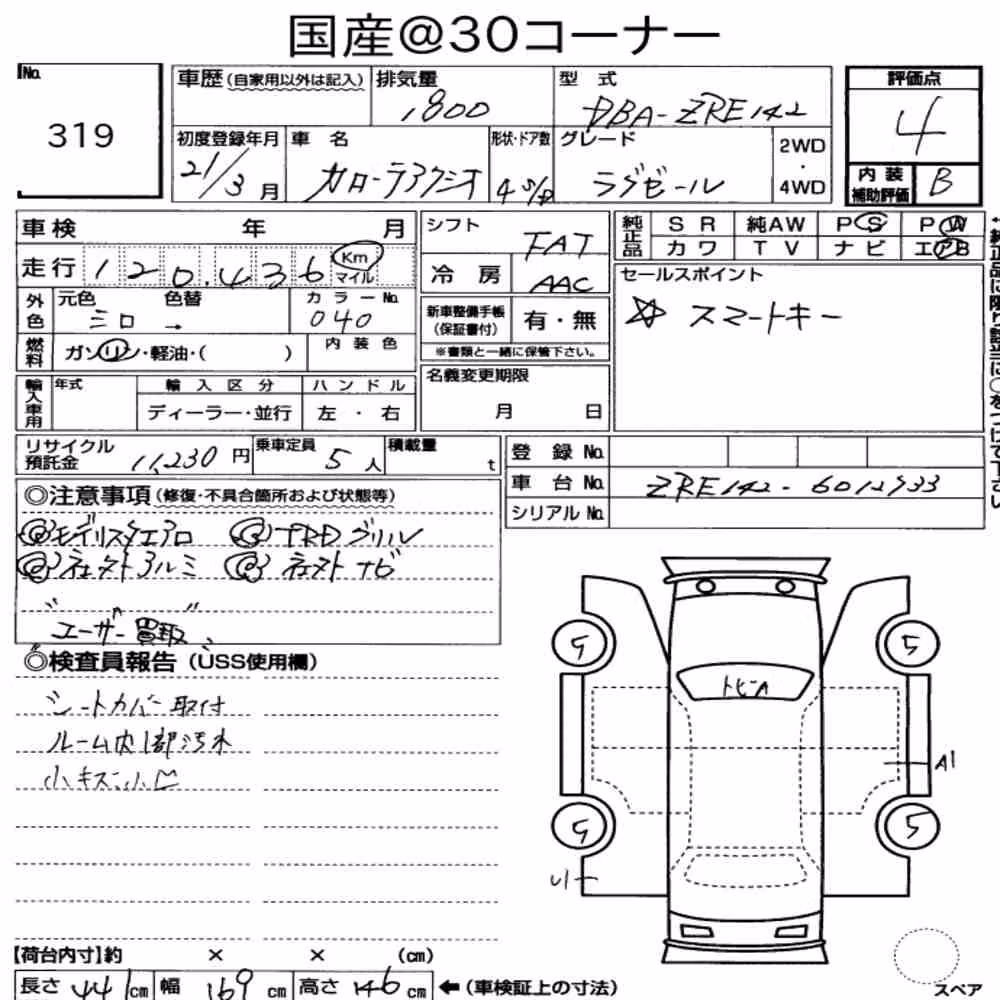 国産@30コーナー
No.
319
車歴(自家用以外は記入)
排気量
1800
型 式
DBA-ZRE142
評価点
4
初度登録年月
21/3月
車 名
カローラアクシオ
形状・ドア数
4 S/D
グレード
ラグゼール
2WD
・
4WD
内 装
補助評価
B
車検 年 月
シフト
FAT
純正品
S R
純AW
P S
P W
カ ワ
T V
ナ ビ
エアB
走行 120.436 Km
マイル
冷 房
AAC
セールスポイント
☆ スマートキー
外色
元色
色替
カ ラ ー No.
シロ →
040
新車整備手帳
(保証書付)
有・無
燃料
ガソリン・軽油・( )
内 装 色
※書類と一緒に保管下さい。
輸入車用
年式
輸 入 区 分
ハ ン ド ル
ディーラー・並行
左 ・ 右
名義変更期限
月 日
リサイクル
預託金
11,230円
乗車定員
5人
積載量
t
登 録 No.
車 台 No.
ZRE142-6012933
シリアルNo.
◎注意事項(修復・不具合箇所および状態等)
@モデリスタエアロ @TRDグリル
@ネェストアルミ @ネェストナビ
"ユーザー買取"
◎検査員報告(USS使用欄)
シートカバー取付
ルーム内1部汚れ
小キズ小凹
トビA
5
5
5
5
A1
U1
【荷台内寸】約 × × (cm)
長さ 441cm 幅 169cm 高さ 146cm ←(車検証上の寸法)
スペア